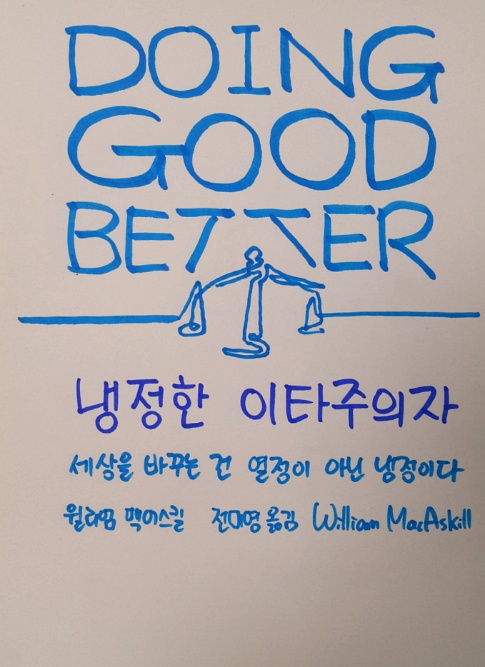 DOING
GOOD
BETTER
냉정한 이타주의자
세상을 바꾸는 건 열정이 아닌 냉정이다
윌리엄 맥어스킬 전미영 옮김 William MacAskill